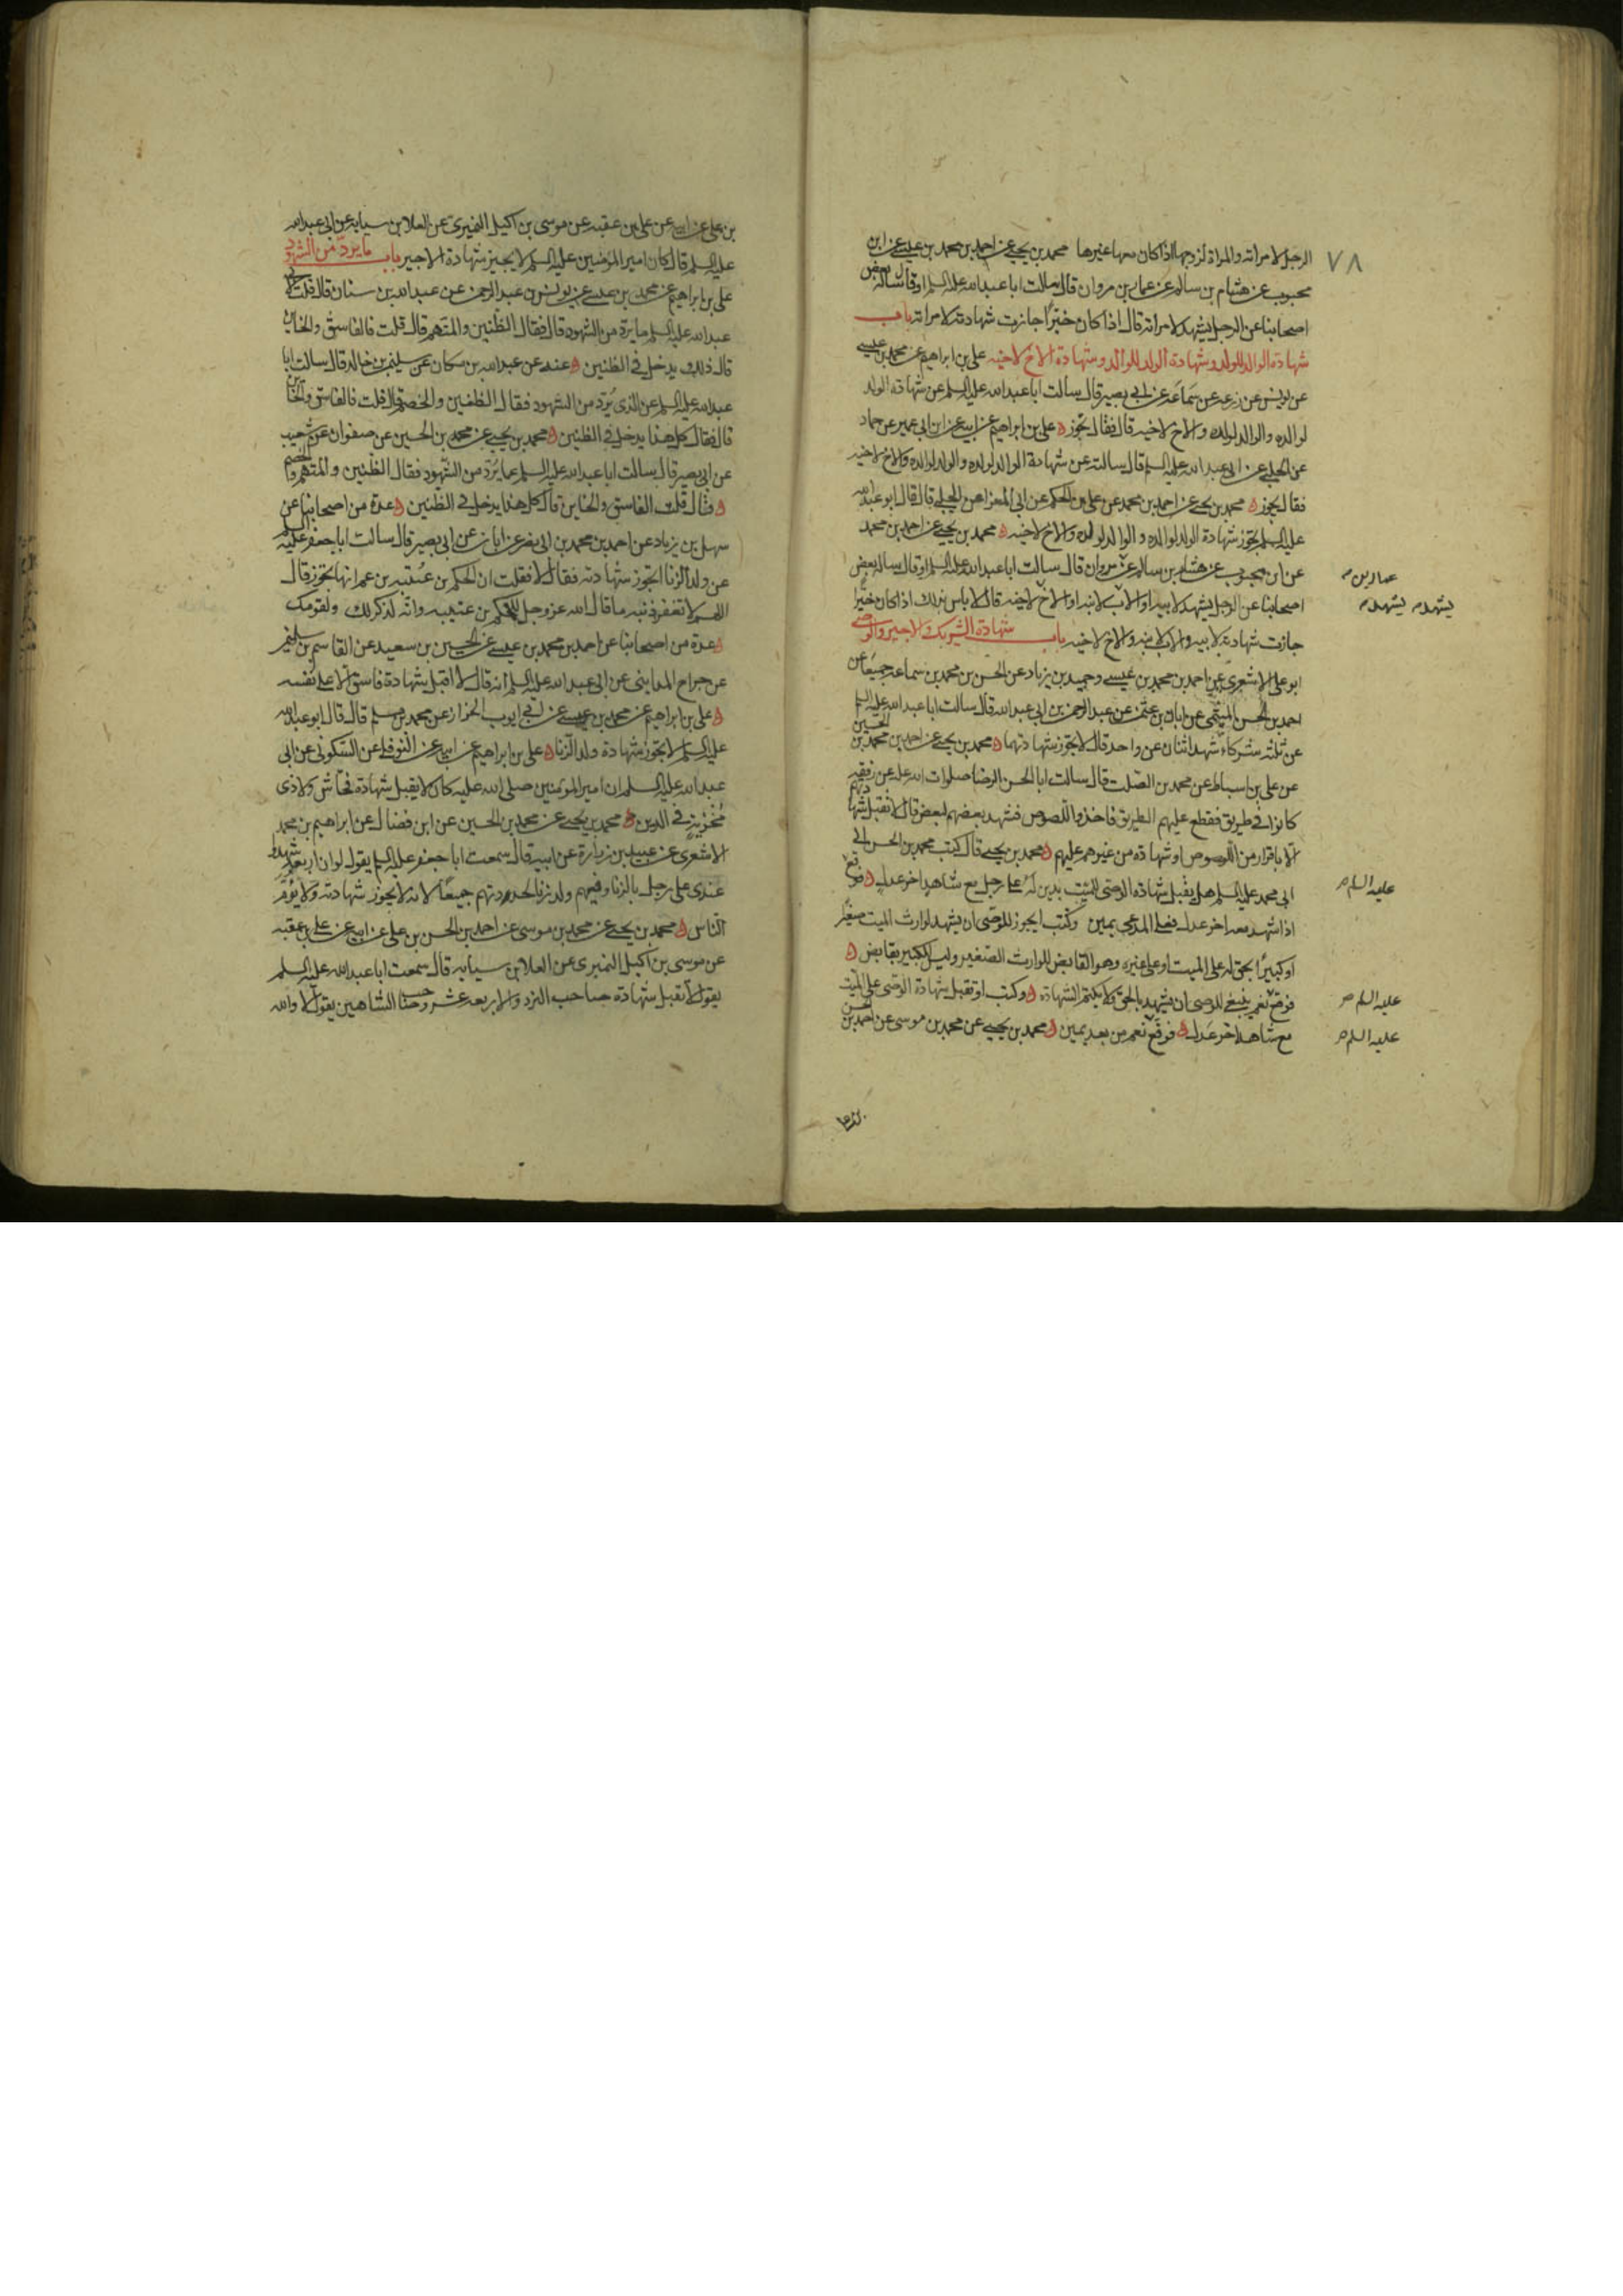 ٧٨
الرجل لامراته والمراة لزوجها اذا كان معها غيرها محمد بن يحيى عن احمد بن محمد بن عيسى عن ابن
محبوب عن هشام بن سالم عن عمار بن مروان قال سالت ابا عبد الله عليه السلم او قال ساله بعض
اصحابنا عن الرجل يشهد لامراته قال اذا كان خيّرا جازت شهادته لامراته باب
شهادة الوالد للولد وشهادة الولد للوالد وشهادة الاخ لاخيه علي بن ابراهيم عن محمد بن عيسى
عن يونس عن زرعه عن سماعة عن ابي بصير قال سالت ابا عبد الله عليه السلم عن شهادة الولد
لوالده والوالد لولده والاخ لاخيه قال فقال يجوز علي بن ابراهيم عن ابيه عن ابن ابي عمير عن حماد
عن الحلبي عن ابي عبد الله عليه السلم قال سالته عن شهادة الوالد لولده والولد لوالده والاخ لاخيه
فقال يجوز محمد بن يحيى عن احمد بن محمد عن علي بن الحكم عن ابي المعزا عن الحلبي قال قال ابو عبد الله
عليه السلم يجوز شهادة الولد لوالده والوالد لولده والاخ لاخيه محمد بن يحيى عن احمد بن محمد
عن ابن محبوب عن هشام بن سالم عن مروان قال سالت ابا عبد الله عليه السلم او قال ساله بعض
عمار بن
اصحابنا عن الرجل يشهد لابيه او الاب لابنه او الاخ لاخيه قال لا باس بذلك اذا كان خيّرا
يشهد يشهد
جازت شهادته لابيه والاب لابنه والاخ لاخيه باب شهادة الشريك والاجير والوصي
ابو علي الاشعري عن احمد بن محمد بن عيسى وحميد بن زياد عن الحسن بن محمد بن سماعه جميعا عن
احمد بن الحسن الميثمي عن ابان بن عثمن عن عبد الرحمن بن ابي عبد الله قال سالت ابا عبد الله عليه السلم
عن ثلثه شركاء شهد اثنان عن واحد قال لا يجوز شهادتهما محمد بن يحيى عن احمد بن محمد بن الحسين
عن علي بن اسباط عن محمد بن الصلت قال سالت ابا الحسن الرضا صلوات الله عليه عن رفقه
كانوا في طريق فقطع عليهم الطريق فاخذوا اللصوص فشهد بعضهم لبعض قال لا تقبل شهادتهم
الا باقرار من اللصوص او شهادة من غيرهم عليهم محمد بن يحيى قال كتب محمد بن الحسن الى
ابي محمد عليه السلم هل يقبل شهادة الوصي للميت بدين له على رجل مع شاهد اخر عدل فوقع
عليه السلم
اذا شهد معه اخر عدل فعلى المدعي يمين وكتب ايجوز للوصي ان يشهد لوارث الميت صغير
او كبيرا بحق له على الميت او على غيره وهو القابض للوارث الصغير وليس للكبير بقابض
فوقع نعم ينبغي للوصي ان يشهد بالحق ولا يكتم الشهادة وكتب او تقبل شهادة الوصي على الميت
عليه السلم
مع شاهد اخر عدل فوقع نعم من بعد يمين محمد بن يحيى عن محمد بن موسى عن احمد بن الحسن
عليه السلم
بن علي عن ابيه عن علي بن عقبه عن موسى بن اكيل النميري عن العلا بن سيابه عن ابي عبد الله
عليه السلم قال كان امير المؤمنين عليه السلم لا يجيز شهادة الاجير باب ما يردّ من الشهود
علي بن ابراهيم عن محمد بن عيسى عن يونس بن عبد الرحمن عن عبد الله بن سنان قال قلت لابي
عبد الله عليه السلم ما يرد من الشهود قال فقال الظنين والمتهم قال قلت فالفاسق والخاين
قال ذلك يدخل في الظنين عنه عن عبد الله بن مسكان عن سليمن بن خالد قال سالت ابا
عبد الله عليه السلم عن الذي يُرد من الشهود فقال الظنين والخصم قال قلت فالفاسق والخاين
قال فقال كل هذا يدخل في الظنين محمد بن يحيى عن محمد بن الحسين عن صفوان عن شعيب
عن ابي بصير قال سالت ابا عبد الله عليه السلم عما يرد من الشهود فقال الظنين والمتهم والخصم
قال قلت الفاسق والخاين قال كل هذا يدخل في الظنين عدة من اصحابنا عن
سهل بن زياد عن احمد بن محمد بن ابي نصر عن ابان عن ابي بصير قال سالت ابا جعفر عليه السلم
عن ولد الزنا اتجوز شهادته فقال لا فقلت ان الحكم بن عُتيبه بن عمر انها تجوز قال
اللهم لا تغفر ذنبه ما قال الله عز وجل للحكم بن عتيبه وانّه لذكر لك ولقومك
عدة من اصحابنا عن احمد بن محمد بن عيسى عن الحسين بن سعيد عن القاسم بن سليمن
عن جراح المدايني عن ابي عبد الله عليه السلم انه قال لا اقبل شهادة فاسق الا على نفسه
علي بن ابراهيم عن محمد بن عيسى عن ابي ايوب الخزاز عن محمد بن مسلم قال قال ابو عبد الله
عليه السلم لا تجوز شهادة ولد الزنا علي بن ابراهيم عن ابيه عن النوفلي عن السكوني عن ابي
عبد الله عليه السلم ان امير المؤمنين صلى الله عليه كان لا يقبل شهادة فحّاش ولا ذي
مُخزية في الدين محمد بن يحيى عن محمد بن الحسين عن ابن فضال عن ابراهيم بن محمد
الاشعري عن عبيد بن زرارة عن ابيه قال سمعت ابا جعفر عليه السلم يقول لو ان اربعة شهدوا
عندي على رجل بالزنا وفيهم ولد زنا لحددتهم جميعًا لانه لا يجوز شهادته ولا يؤمّ
الناس محمد بن يحيى عن محمد بن موسى عن احمد بن الحسن بن علي عن ابيه عن علي بن عقبه
عن موسى بن اكيل النميري عن العلا بن سيابه قال سمعت ابا عبد الله عليه السلم
يقول لا تقبل شهادة صاحب النرد والاربعه عشر وصاحب الشاهين يقول لا والله